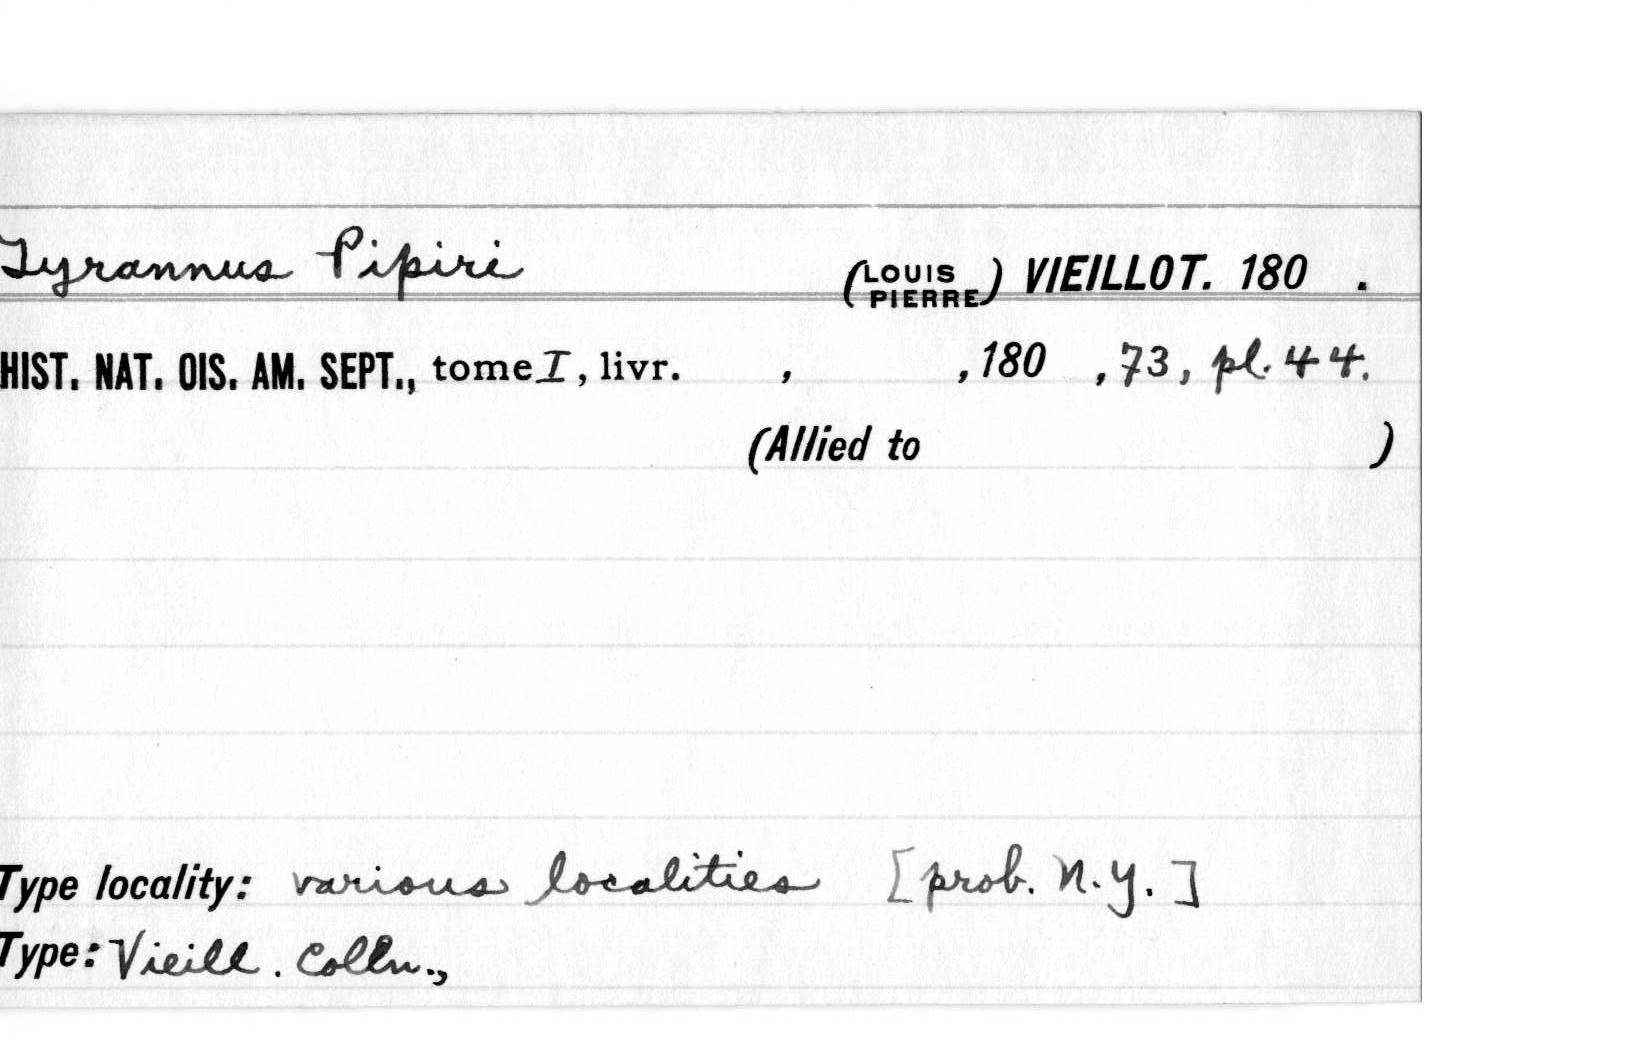 Tyrannus Pipiri (LOUIS PIERRE) VIEILLOT. 180 .
HIST. NAT. OIS. AM. SEPT., tome I, livr. , , 180 , 73, pl. 44.
(Allied to )
Type locality: various localities [prob. N.Y.]
Type: Vieill. Colln.,